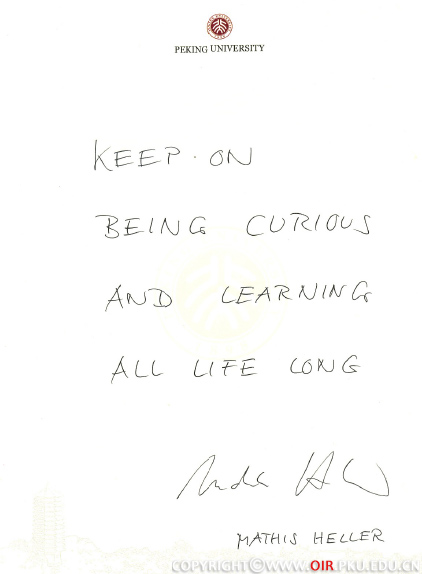 PEKING UNIVERSITY
KEEP ON
BEING CURIOUS
AND LEARNING
ALL LIFE LONG
MATHIS HELLER
COPYRIGHT©WWW.OIR.PKU.EDU.CN